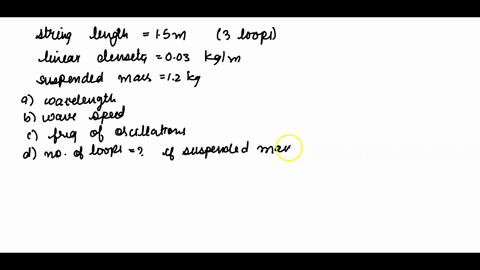 string length = 1.5m (3 loops)
linear density = 0.03 kg/m
suspended mass = 1.2 kg
a) wavelength
b) wave speed
c) freq of oscillations
d) no. of loops = ? if suspended mas